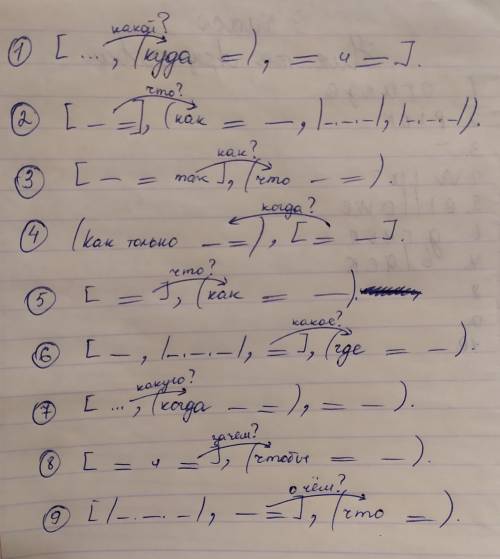 какой?
① [ ..., (куда =), = и = ].
что?
② [ — = ], (как = —, |_._._|, |_._._|).
как?
③ [ — = так ], (что — =).
когда?
④ (как только — =), [ = — ].
что?
⑤ [ = ], (как = —).
какое?
⑥ [ —, |_._._|, = ], (где = —).
какую?
⑦ [ ..., (когда — =), = — ).
зачем?
⑧ [ = и = ], (чтобы = —).
о чём?
⑨ [ |_._._|, — = ], (что =).